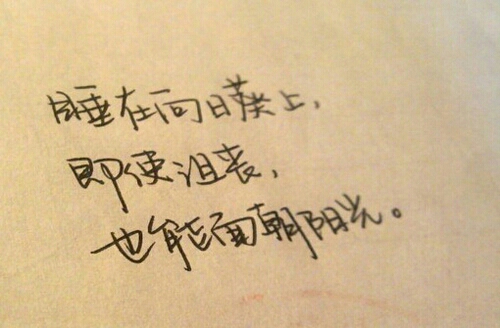 睡在向日葵上,
即使沮丧,
也能面朝阳光。